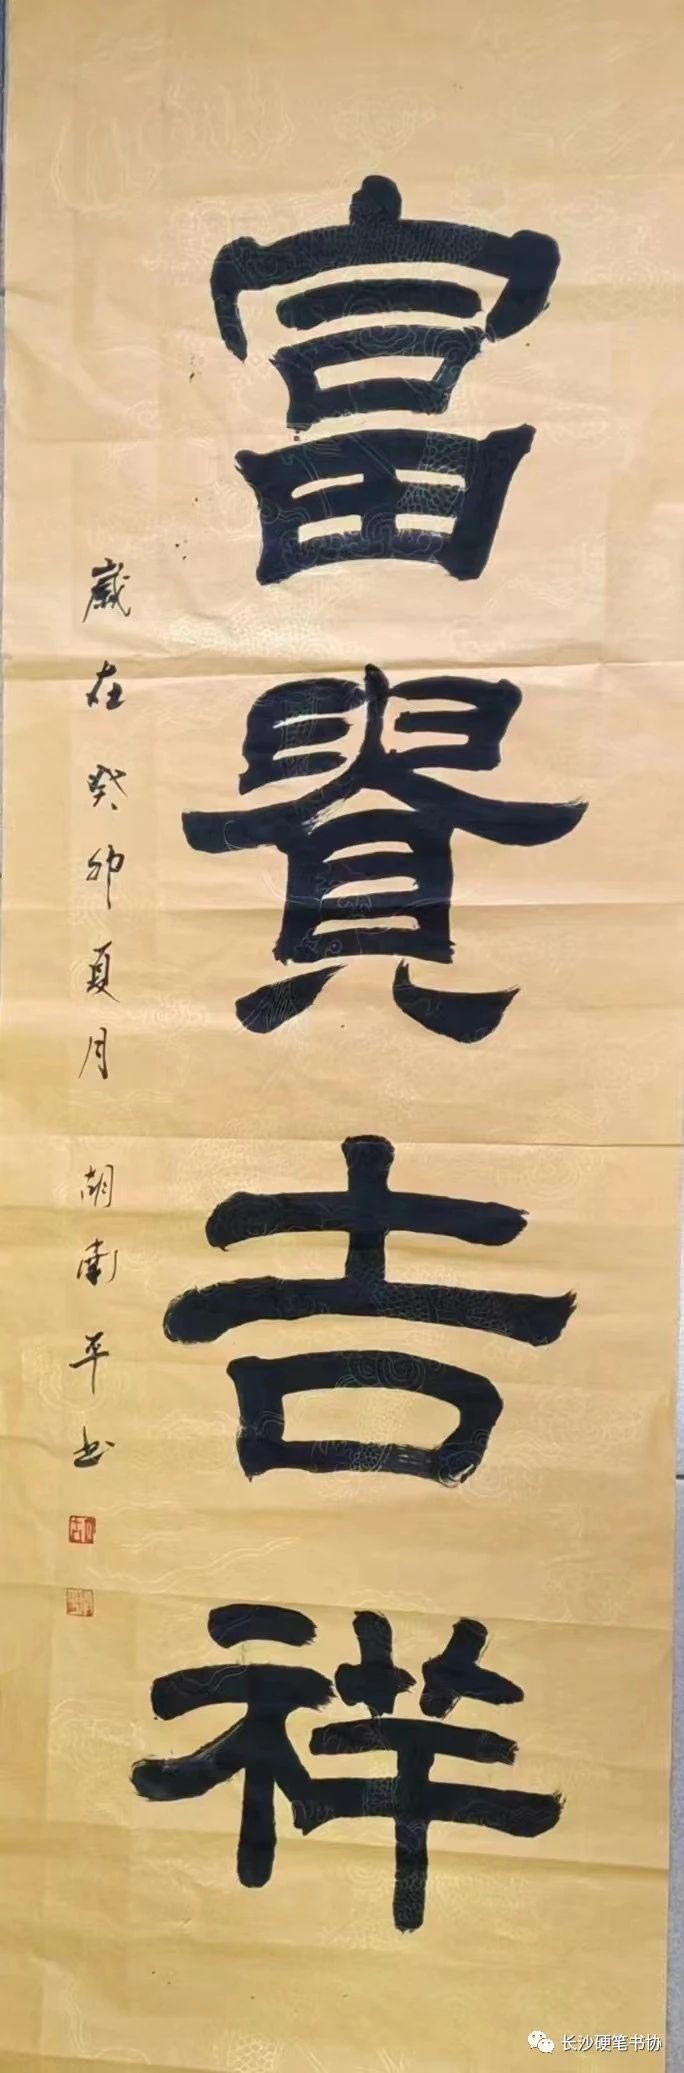 富貴吉祥
歲在癸卯夏月 胡南平书
长沙硬笔书协